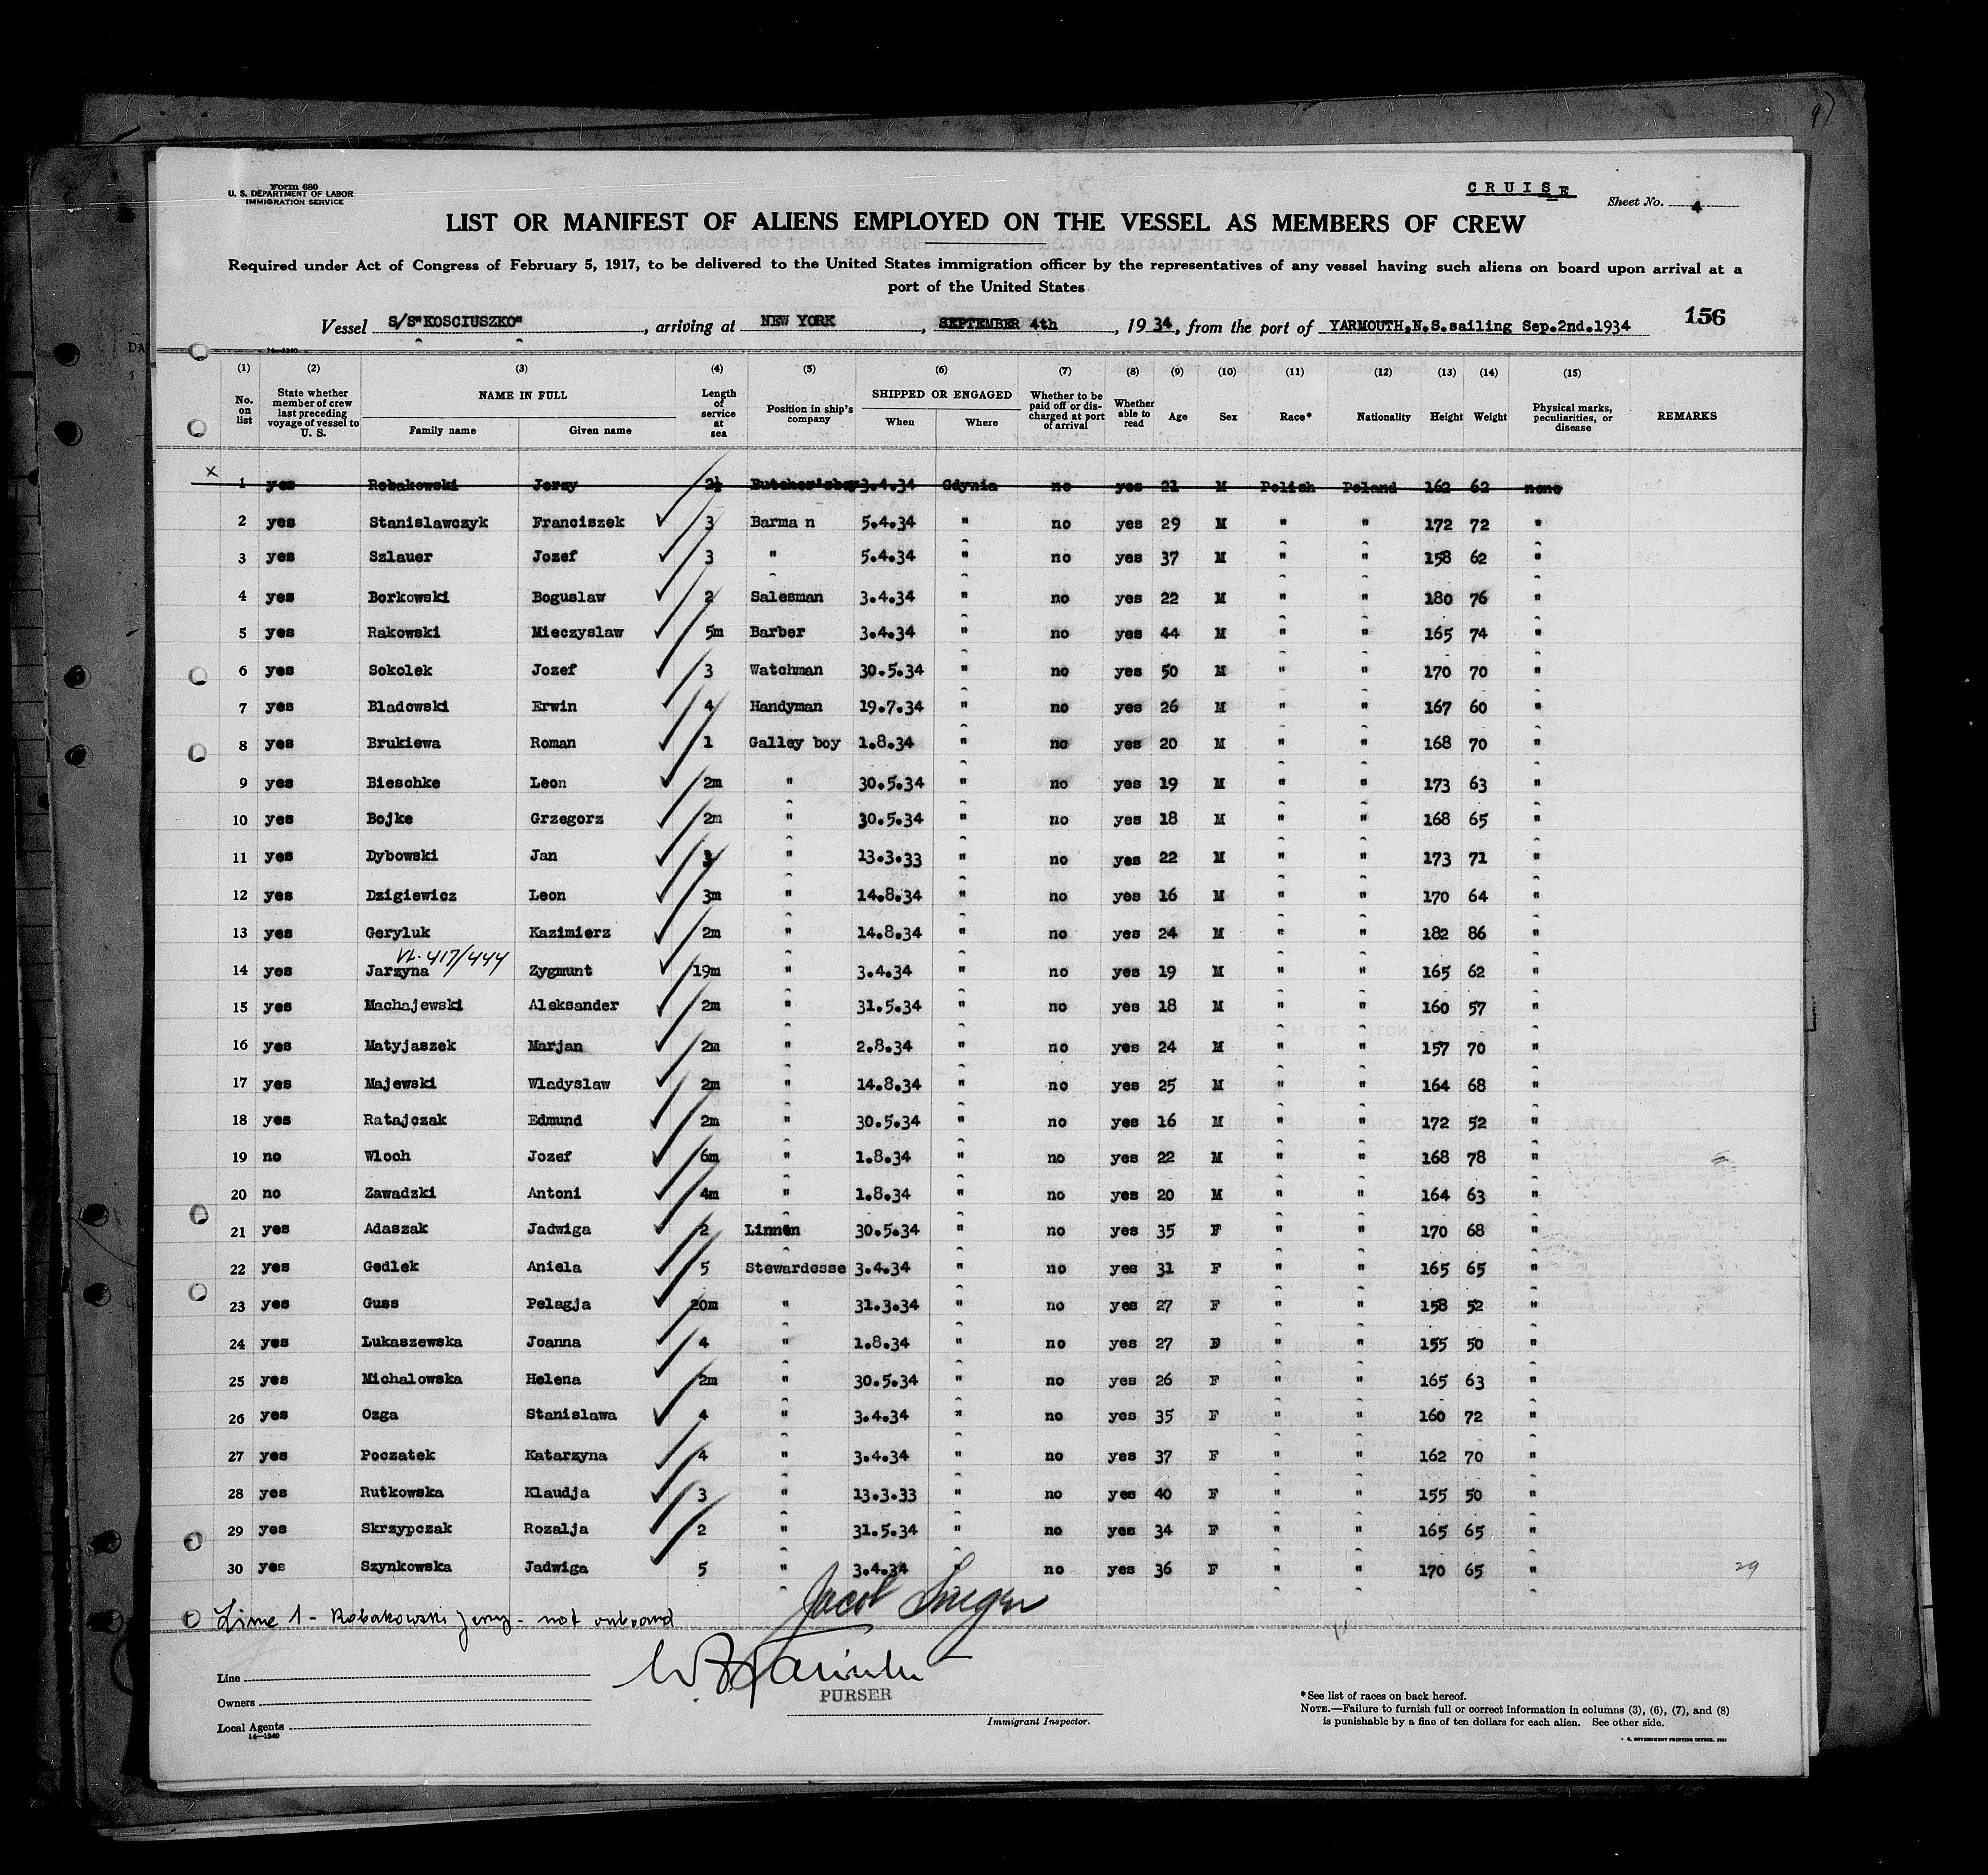 97
Form 680
U. S. DEPARTMENT OF LABOR
IMMIGRATION SERVICE
CRUISE
Sheet No. 4
LIST OR MANIFEST OF ALIENS EMPLOYED ON THE VESSEL AS MEMBERS OF CREW
Required under Act of Congress of February 5, 1917, to be delivered to the United States immigration officer by the representatives of any vessel having such aliens on board upon arrival at a
port of the United States
Vessel S/S"KOSCIUSZKO", arriving at NEW YORK, SEPTEMBER 4th, 1934, from the port of YARMOUTH,N.S.sailing Sep.2nd.1934 156
14-1240
(1) (2) (3) (4) (5) (6) (7) (8) (9) (10) (11) (12) (13) (14) (15)
No. on list State whether member of crew last preceding voyage of vessel to U. S. NAME IN FULL Family name Given name Length of service at sea Position in ship's company SHIPPED OR ENGAGED When Where Whether to be paid off or discharged at port of arrival Whether able to read Age Sex Race* Nationality Height Weight Physical marks, peculiarities, or disease REMARKS
x 1 yes Robakowski Jerzy 2½ Butcher'sboy 3.4.34 Gdynia no yes 21 M Polish Poland 162 62 none
2 yes Stanislawczyk Franciszek ✓ 3 Barma n 5.4.34 " no yes 29 M " " 172 72 "
3 yes Szlauer Jozef ✓ 3 " 5.4.34 " no yes 37 M " " 158 62 "
4 yes Borkowski Boguslaw ✓ 2 Salesman 3.4.34 " no yes 22 M " " 180 76 "
5 yes Rakowski Mieczyslaw ✓ 5m Barber 3.4.34 " no yes 44 M " " 165 74 "
6 yes Sokolek Jozef ✓ 3 Watchman 30.5.34 " no yes 50 M " " 170 70 "
7 yes Bladowski Erwin ✓ 4 Handyman 19.7.34 " no yes 26 M " " 167 60 "
8 yes Brukiewa Roman ✓ 1 Galley boy 1.8.34 " no yes 20 M " " 168 70 "
9 yes Bieschke Leon ✓ 2m " 30.5.34 " no yes 19 M " " 173 63 "
10 yes Bojke Grzegorz ✓ 2m " 30.5.34 " no yes 18 M " " 168 65 "
11 yes Dybowski Jan ✓ 3 " 13.3.33 " no yes 22 M " " 173 71 "
12 yes Dzigiewicz Leon ✓ 3m " 14.8.34 " no yes 16 M " " 170 64 "
13 yes Geryluk Kazimierz ✓ 2m " 14.8.34 " no yes 24 M " " 182 86 "
VL. 417/444
14 yes Jarzyna Zygmunt ✓ 19m " 3.4.34 " no yes 19 M " " 165 62 "
15 yes Machajewski Aleksander ✓ 2m " 31.5.34 " no yes 18 M " " 160 57 "
16 yes Matyjaszek Marjan ✓ 2m " 2.8.34 " no yes 24 M " " 157 70 "
17 yes Majewski Wladyslaw ✓ 2m " 14.8.34 " no yes 25 M " " 164 68 "
18 yes Ratajczak Edmund ✓ 2m " 30.5.34 " no yes 16 M " " 172 52 "
19 no Wloch Jozef ✓ 6m " 1.8.34 " no yes 22 M " " 168 78 "
20 no Zawadzki Antoni ✓ 4m " 1.8.34 " no yes 20 M " " 164 63 "
21 yes Adaszak Jadwiga ✓ 2 Linnen 30.5.34 " no yes 35 F " " 170 68 "
22 yes Gedlek Aniela ✓ 5 Stewardesse 3.4.34 " no yes 31 F " " 165 65 "
23 yes Guss Pelagja ✓ 20m " 31.3.34 " no yes 27 F " " 158 52 "
24 yes Lukaszewska Joanna ✓ 4 " 1.8.34 " no yes 27 F " " 155 50 "
25 yes Michalowska Helena ✓ 2m " 30.5.34 " no yes 26 F " " 165 63 "
26 yes Ozga Stanislawa ✓ 4 " 3.4.34 " no yes 35 F " " 160 72 "
27 yes Poczatek Katarzyna ✓ 4 " 3.4.34 " no yes 37 F " " 162 70 "
28 yes Rutkowska Klaudja ✓ 3 " 13.3.33 " no yes 40 F " " 155 50 "
29 yes Skrzypczak Rozalja ✓ 2 " 31.5.34 " no yes 34 F " " 165 65 "
30 yes Szynkowska Jadwiga ✓ 5 " 3.4.34 " no yes 36 F " " 170 65 " 29
Line 1 - Robakowski Jerzy - not onboard
Jacob
Line
Owners
Local Agents
14-1240
PURSER
Immigrant Inspector.
*See list of races on back hereof.
NOTE.—Failure to furnish full or correct information in columns (3), (6), (7), and (8)
is punishable by a fine of ten dollars for each alien. See other side.
U. S. GOVERNMENT PRINTING OFFICE. 1930